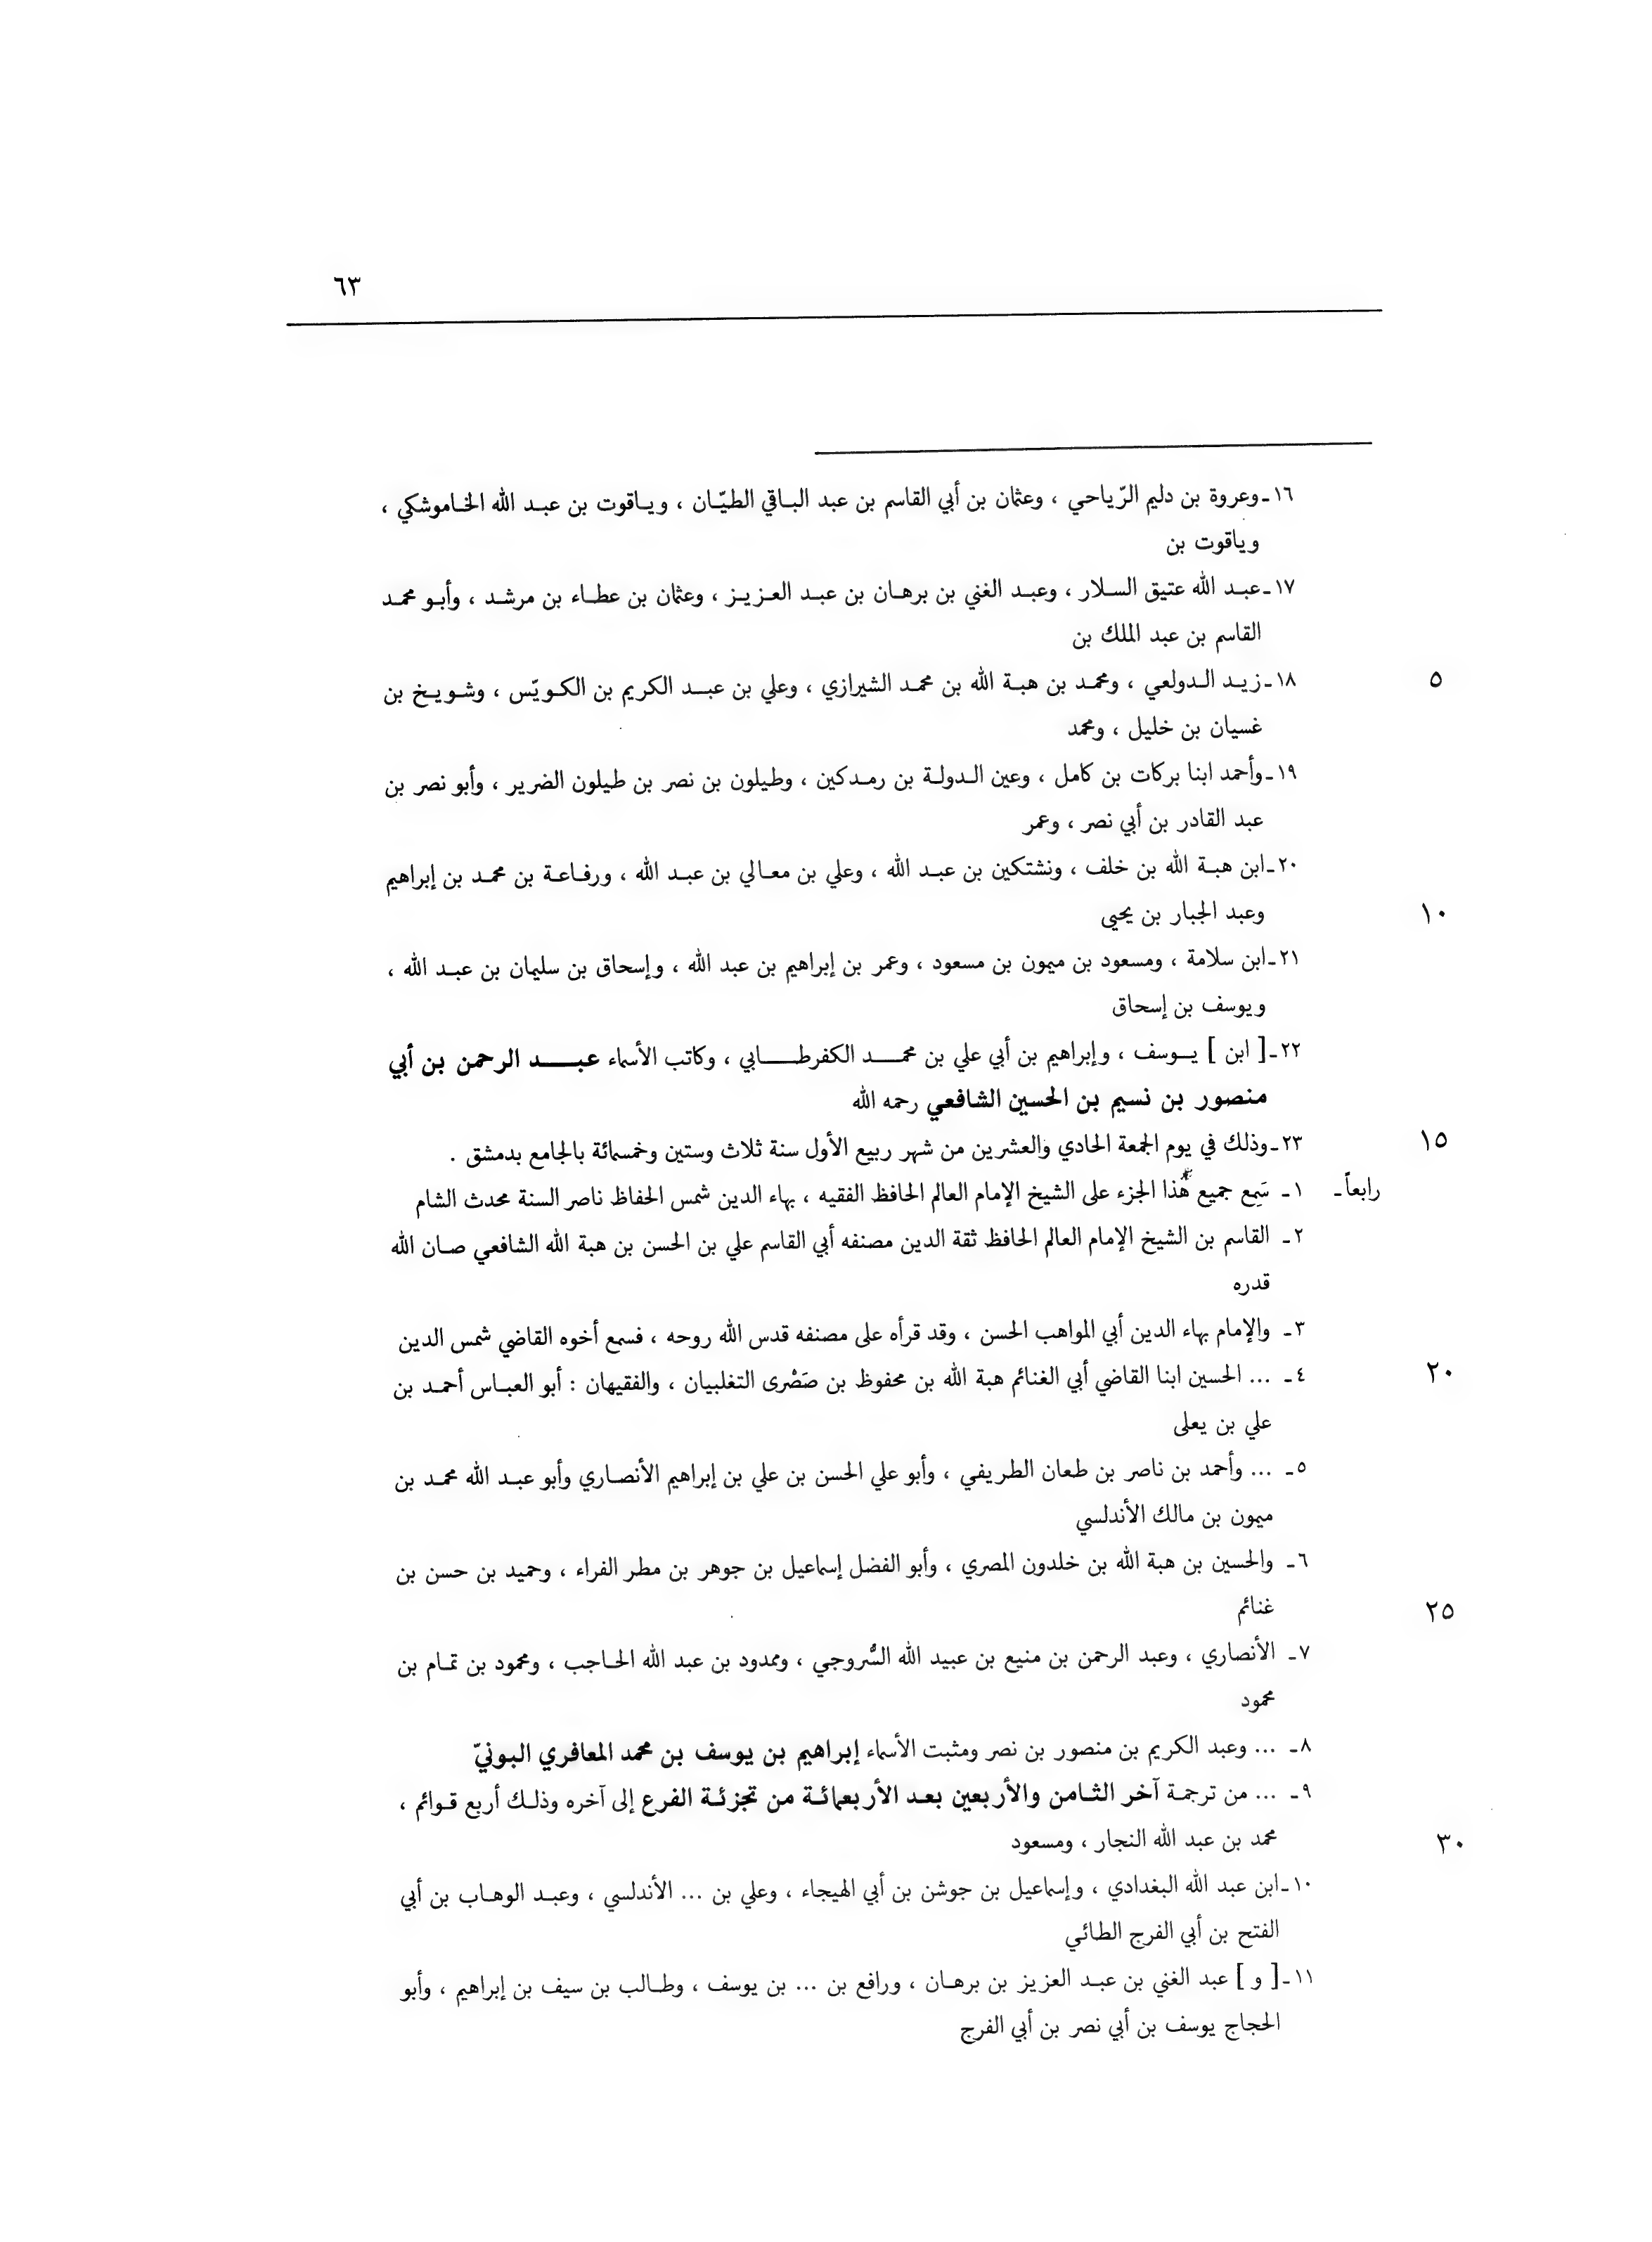 ٦٣
١٦ـ وعروة بن دليم الرّياحي ، وعثمان بن أبي القاسم بن عبد الباقي الطيّان ، وياقوت بن عبد الله الخاموشكي ،
وياقوت بن
١٧ـ عبد الله عتيق السلار ، وعبد الغني بن برهان بن عبد العزيز ، وعثمان بن عطاء بن مرشد ، وأبو محمد
القاسم بن عبد الملك بن
١٨ـ زيد الدولعي ، ومحمد بن هبة الله بن محمد الشيرازي ، وعلي بن عبد الكريم بن الكويّس ، وشويخ بن ٥
غسيان بن خليل ، ومحمد
١٩ـ وأحمد ابنا بركات بن كامل ، وعين الدولة بن رمدكين ، وطيلون بن نصر بن طيلون الضرير ، وأبو نصر بن
عبد القادر بن أبي نصر ، وعمر
٢٠ـ ابن هبة الله بن خلف ، ونشتكين بن عبد الله ، وعلي بن معالي بن عبد الله ، ورفاعة بن محمد بن إبراهيم
وعبد الجبار بن يحيى ١٠
٢١ـ ابن سلامة ، ومسعود بن ميمون بن مسعود ، وعمر بن إبراهيم بن عبد الله ، وإسحاق بن سليمان بن عبد الله ،
ويوسف بن إسحاق
٢٢ـ [ ابن ] يوسف ، وإبراهيم بن أبي علي بن محمد الكفرطابي ، وكاتب الأسماء عبد الرحمن بن أبي
منصور بن نسيم بن الحسين الشافعي رحمه الله
٢٣ـ وذلك في يوم الجمعة الحادي والعشرين من شهر ربيع الأول سنة ثلاث وستين وخمسمائة بالجامع بدمشق . ١٥
رابعاً ـ ١ـ سَمِع جميع هذا الجزء على الشيخ الإمام العالم الحافظ الفقيه ، بهاء الدين شمس الحفاظ ناصر السنة محدث الشام
٢ـ القاسم بن الشيخ الإمام العالم الحافظ ثقة الدين مصنفه أبي القاسم علي بن الحسن بن هبة الله الشافعي صان الله
قدره
٣ـ والإمام بهاء الدين أبي المواهب الحسن ، وقد قرأه على مصنفه قدس الله روحه ، فسمع أخوه القاضي شمس الدين
٤ـ ... الحسين ابنا القاضي أبي الغنائم هبة الله بن محفوظ بن صَصْرى التغلبيان ، والفقيهان : أبو العباس أحمد بن ٢٠
علي بن يعلى
٥ـ ... وأحمد بن ناصر بن طعان الطريفي ، وأبو علي الحسن بن علي بن إبراهيم الأنصاري وأبو عبد الله محمد بن
ميمون بن مالك الأندلسي
٦ـ والحسين بن هبة الله بن خلدون المصري ، وأبو الفضل إسماعيل بن جوهر بن مطر الفراء ، وحميد بن حسن بن
غنائم ٢٥
٧ـ الأنصاري ، وعبد الرحمن بن منيع بن عبيد الله السُّروجي ، وممدود بن عبد الله الحاجب ، ومحمود بن تمام بن
محمود
٨ـ ... وعبد الكريم بن منصور بن نصر ومثبت الأسماء إبراهيم بن يوسف بن محمد المعافري البونيّ
٩ـ ... من ترجمة آخر الثامن والأربعين بعد الأربعمائة من تجزئة الفرع إلى آخره وذلك أربع قوائم ،
محمد بن عبد الله النجار ، ومسعود ٣٠
١٠ـ ابن عبد الله البغدادي ، وإسماعيل بن جوشن بن أبي الهيجاء ، وعلي بن ... الأندلسي ، وعبد الوهاب بن أبي
الفتح بن أبي الفرج الطائي
١١ـ [ و ] عبد الغني بن عبد العزيز بن برهان ، ورافع بن ... بن يوسف ، وطالب بن سيف بن إبراهيم ، وأبو
الحجاج يوسف بن أبي نصر بن أبي الفرج